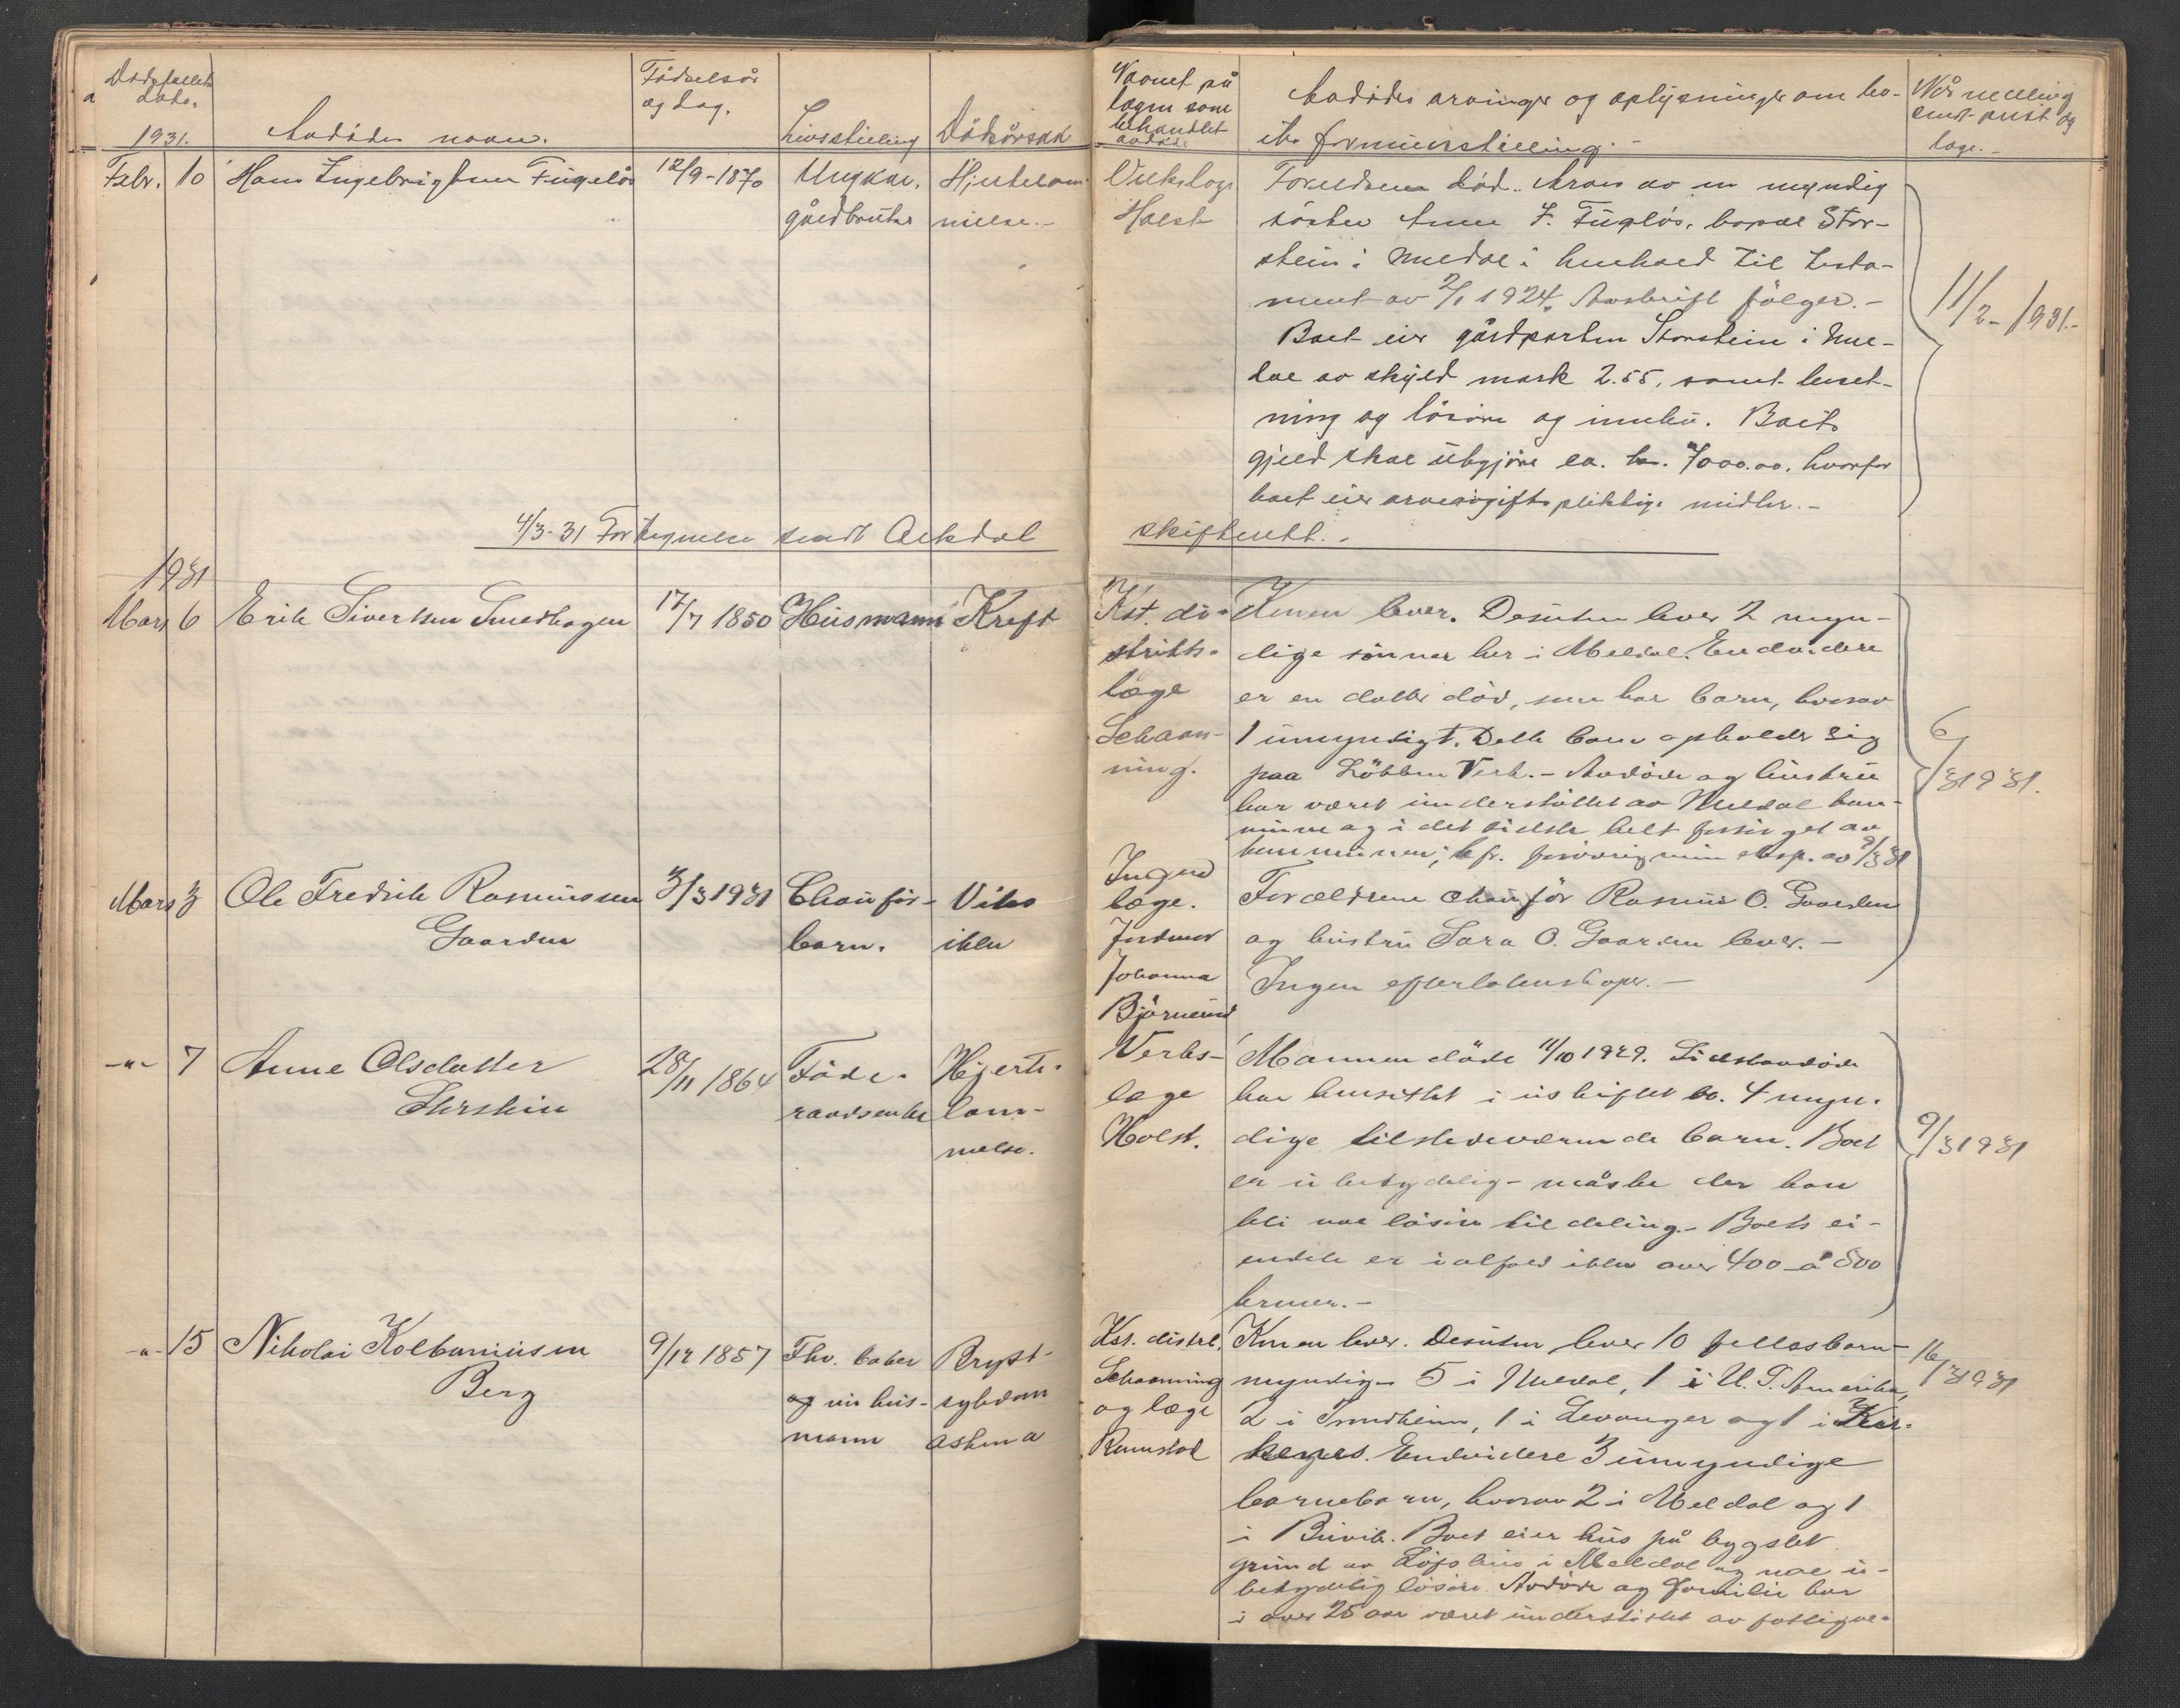 Dødsfallets dato. 1931.
Avdødes navn.
Fødselsår og dag.
Livsstilling
Dødsårsak
Navnet på lægen som behandlet avdøde
Avdødes arvinger og oplysninger om bo-
ets formuesstilling.-
Når melling sendt prest og lage.-
Febr. 10 Hans Ingebrigtsen Fugelås
12/9-1870
Ungkar, gårdbruker
Hjertelammelse.-
Verkslæge Holst
Foreldrene død. Arves av en myndig
søster Anne I. Fugelås, bopæl Stor-
stein i Meldal i henhold til testa-
ment av 2/1 1924. Avskrift følger.-
Boet eier gårdparten Storstein i Mel-
dal av skyld mark 2.55, samt beset-
ning og løsøre og innbu. Boets
gjeld skal utgjøre ca. kr. 7000.00. hvorfor
boet eier arveavgiftspliktige midler.-
11/2-1931.-
4/3-31 Fortegnelse sendt Orkdal skifterett.-
1931
Mars 6 Erik Sivertsen Smedhagen
17/7 1850
Husmann
Kreft
Kst. di-
strikts-
læge
Schaan-
ning.
Konen lever. Desuten lever 2 myn-
dige sønner her i Meldal. Endvidere
er en datter død, som har barn, hvorav
1 umyndigt. Dette barn opholder sig
paa Løkken Verk.- Avdøde og hustru
har været understøttet av Meldal kom-
mune og i det sidste helt forsørget av
kommunen; kfr. forøvrig min eksp. av 9/3 31
6/3 1931.
Mars 3 Ole Fredrik Rasmussen
Gaarden
3/3 1931
Chaufør-
barn.
Vites
ikke
Ingen
læge.
Jordmor
Johanna
Bjørnerud
Forældrene chaufør Rasmus O. Gaarden
og hustru Sara O. Gaarden lever.-
Ingen efterlatenskaper.-
-"- 7 Anne Olsdatter
28/11 1864
Føde-
raadsenke
Hjerte-
lam-
melse.
Verks-
læge
Holst.
Mannen døde 11/10 1929. Sidstavdøde
har hensittet i uskiftet bo. 4 myn-
dige tilstedeværende barn. Boet
er ubetydelig - måske der kan
bli noe løsøre til deling.- Boets ei-
endele er ialfald ikke over 400 à 500
kroner.-
9/3 1931
-"- 15 Nikolai Kolbanussen
Berg
9/12 1857
Fhv. baker
og nu hus-
mann
Bryst-
sykdom
astma
Kst. distrl.
Schaanning
og læge
Ramstad
Konen lever. Desuten lever 10 fellesbarn-
myndige 5 i Meldal, 1 i U. S. Amerika,
2 i Trondheim, 1 i Levanger og 1 i Kir-
kenes. Endvidere 3 umyndige
barnebarn, hvorav 2 i Meldal og 1
i Buvik. Boet eier hus på bygslet
grund av i Meldal og noe u-
betydelig løsøre. Avdøde og familie har
i over 25 aar været understøttet av fattigve-
16/3 1931